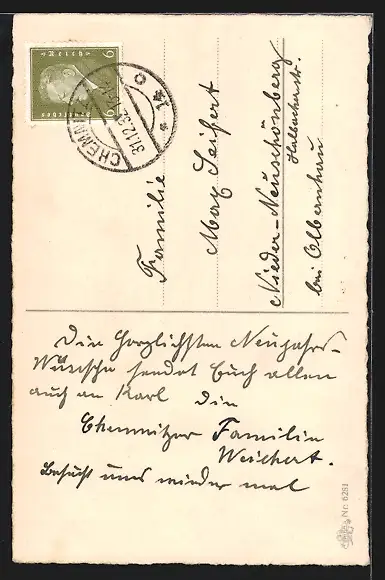 6
6
Deutsches Reich
CHEMNITZ
31.12.3
14
Familie
Max Seifert
Nieder-Neuschönberg
Halbacherstr.
bei Olbernhau
Die herzlichsten Neujahrs-
Wünsche sendet Euch allen
auch an Karl die
Chemnitzer Familie
Weichert.
Besucht uns wieder mal
Nr. 6281